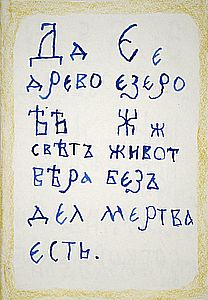 Д д Є е
древо езеро
Ѣ ѣ Ж ж
свѣтъ живот
вѣра безъ
дел мертва
есть.